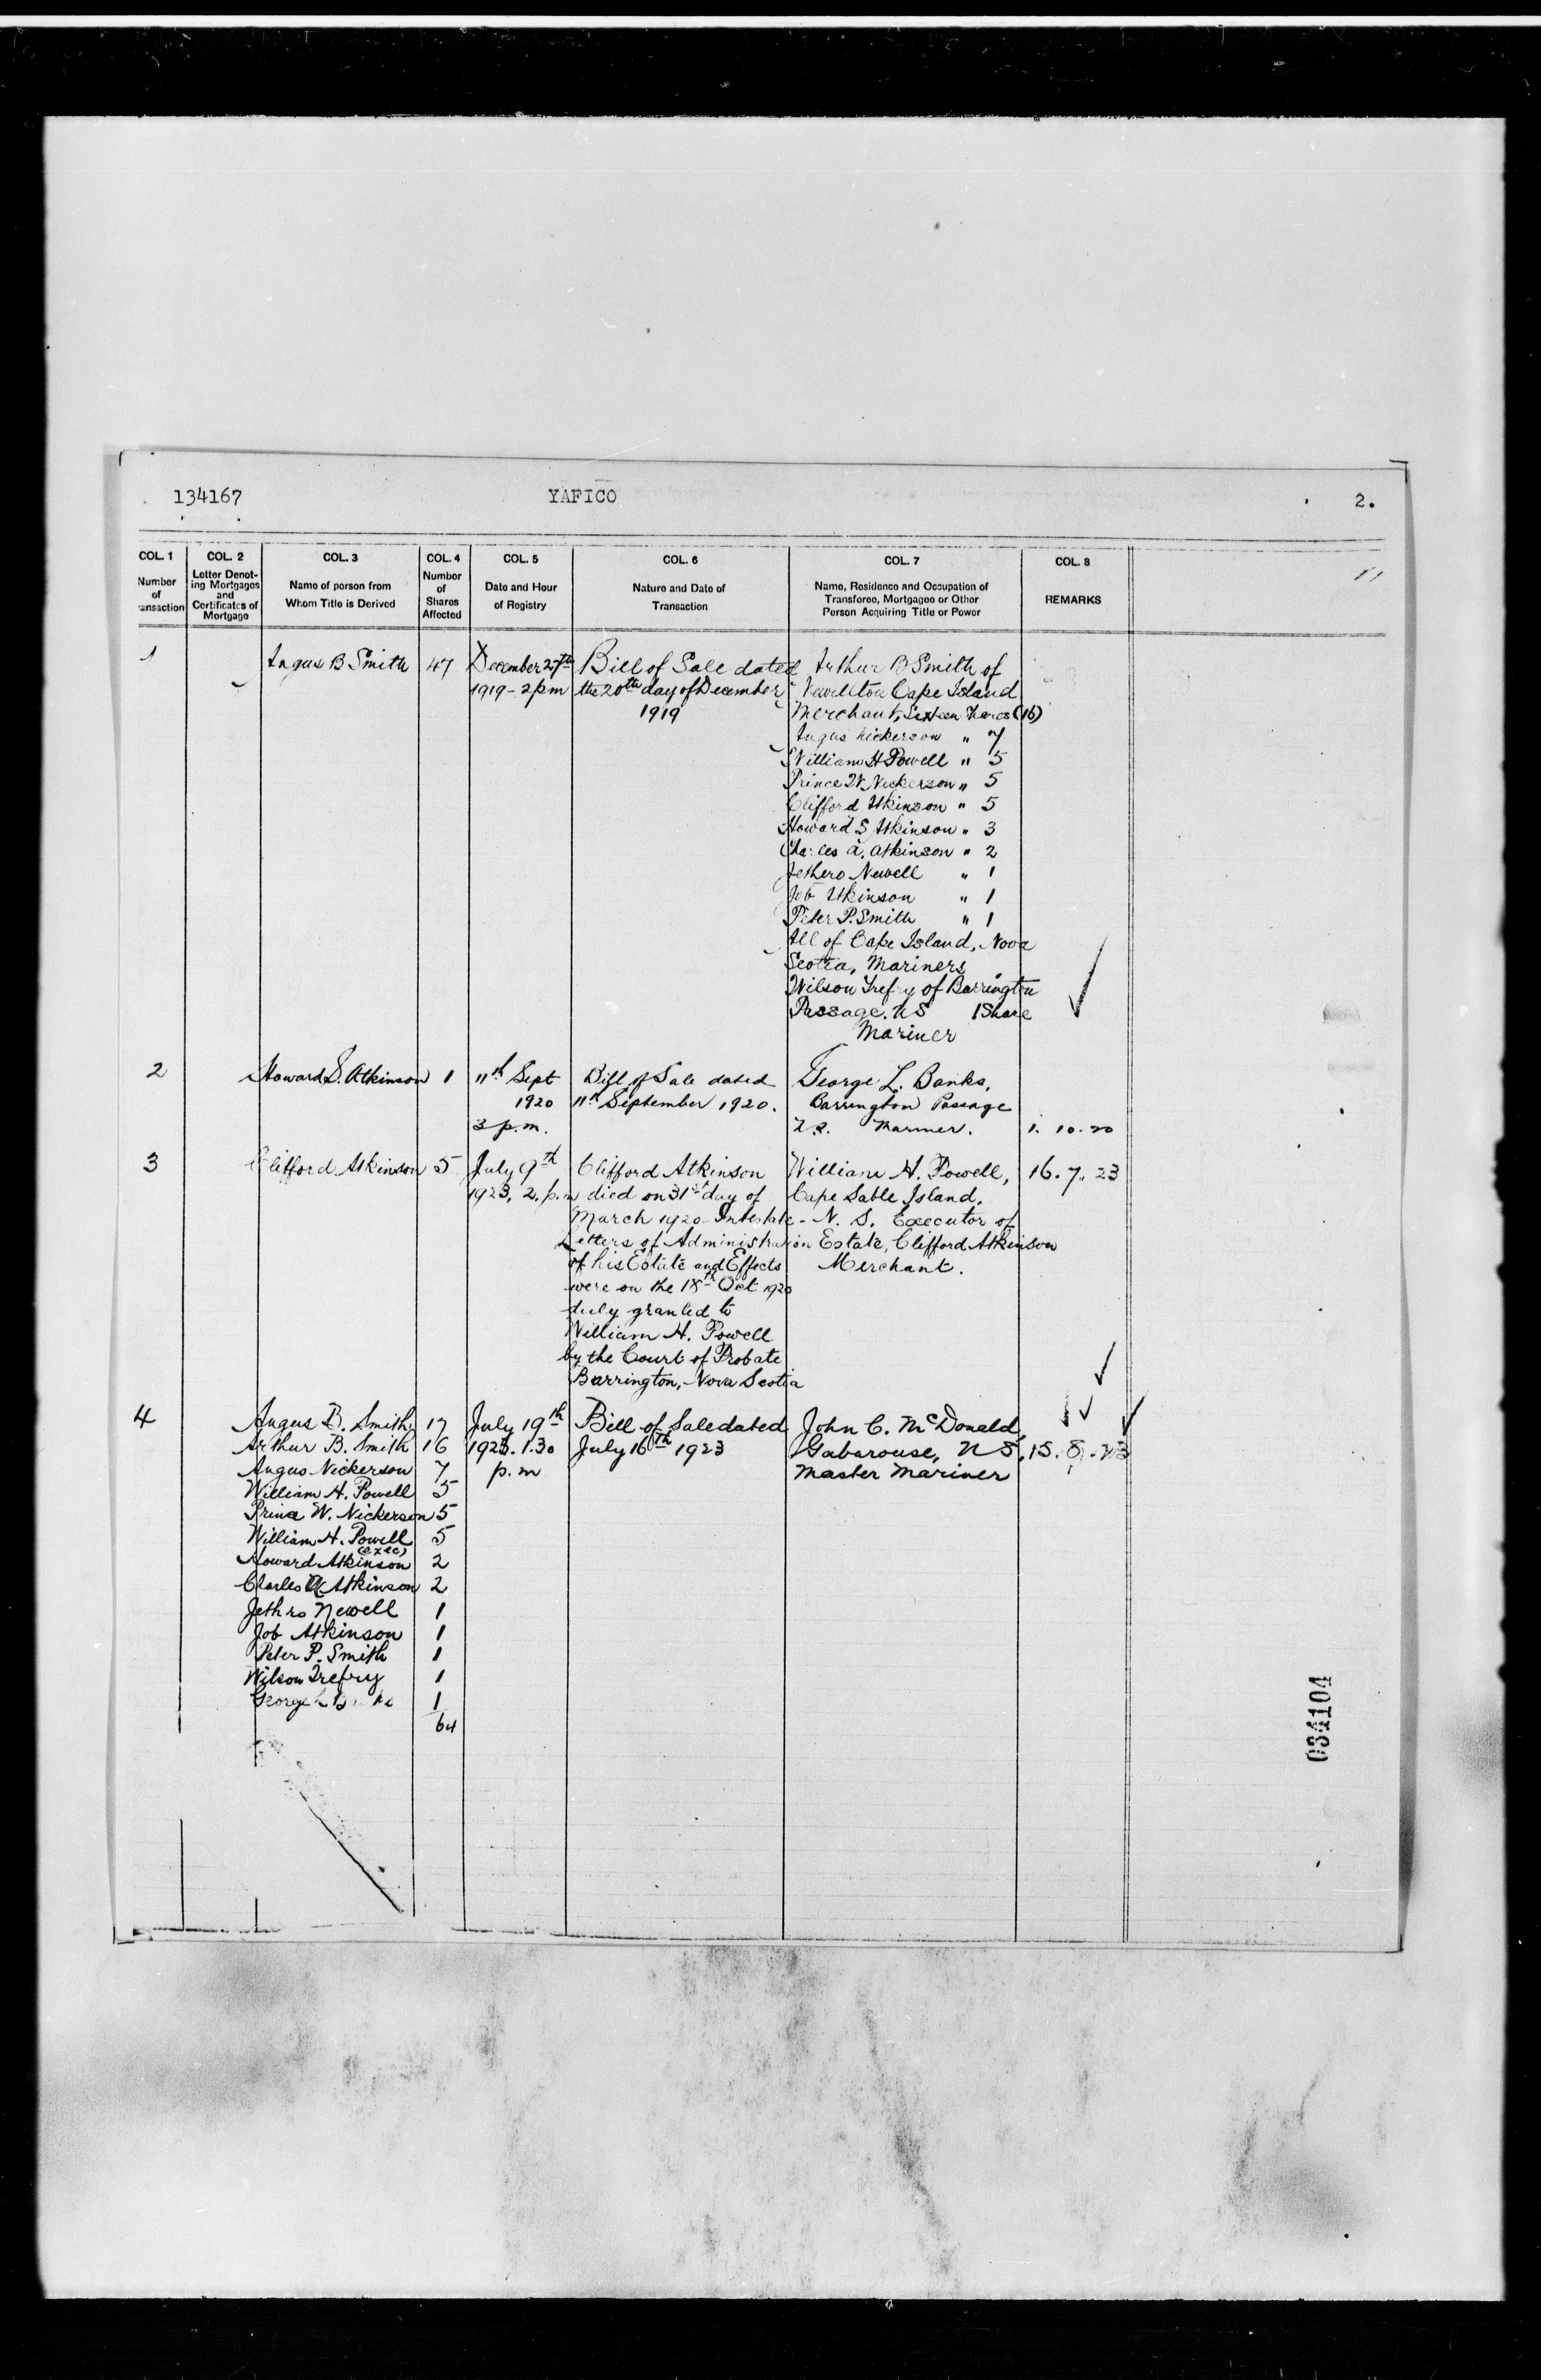 134167 YAFICO 2.
COL. 1 COL. 2 COL. 3 COL. 4 COL. 5 COL. 6 COL. 7 COL. 8
Number of ransaction
Letter Denoting Mortgages and Certificates of Mortgage
Name of person from Whom Title is Derived
Number of Shares Affected
Date and Hour of Registry
Nature and Date of Transaction
Name, Residence and Occupation of Transferee, Mortgagee or Other Person Acquiring Title or Power
REMARKS
11
1 Angus B Smith 47 December 27th Bill of Sale dated Arthur B Smith of
1919 - 2 pm the 20th day of December Newellton Cape Island
1919 Merchant, Sixteen Shares (16)
Angus Nickerson " 7
William H Powell " 5
Prince W. Nickerson " 5
Clifford Atkinson " 5
Howard S Atkinson " 3
Charles A. Atkinson " 2
Jethero Newell " 1
Job Atkinson " 1
Peter P. Smith " 1
All of Cape Island, Nova
Scotia, Mariners.
Wilson Trefry of Barrington
Passage. NS 1 Share
Mariner
2 Howard S. Atkinson 1 11th Sept Bill of Sale dated George L. Banks,
1920 11th September 1920. Barrington Passage
3 p.m. N.S. Mariner. 1. 10. 20
3 Clifford Atkinson 5 July 9th Clifford Atkinson William H. Powell, 16. 7. 23
1923, 2. p.m died on 31st day of Cape Sable Island.
March 1920 - Intestate - N. S. Executor of
Letters of Administration Estate, Clifford Atkinson
of his Estate and Effects Merchant.
were on the 18th Oct 1920
duly granted to
William H. Powell
by the Court of Probate
Barrington, Nova Scotia
4 Angus B. Smith 17 July 19th Bill of Sale dated John C. McDonald,
Arthur B. Smith 16 1923. 1.30 July 16th 1923 Gabarouse, N S, 15. 8. 23
Angus Nickerson 7 p.m Master Mariner
William H. Powell 5
Prince W. Nickerson 5
William H. Powell 5
(exec)
Howard Atkinson 2
Charles A Atkinson 2
Jethro Newell 1
Job Atkinson 1
Peter P. Smith 1
Wilson Trefry 1
George L 1
64
034104